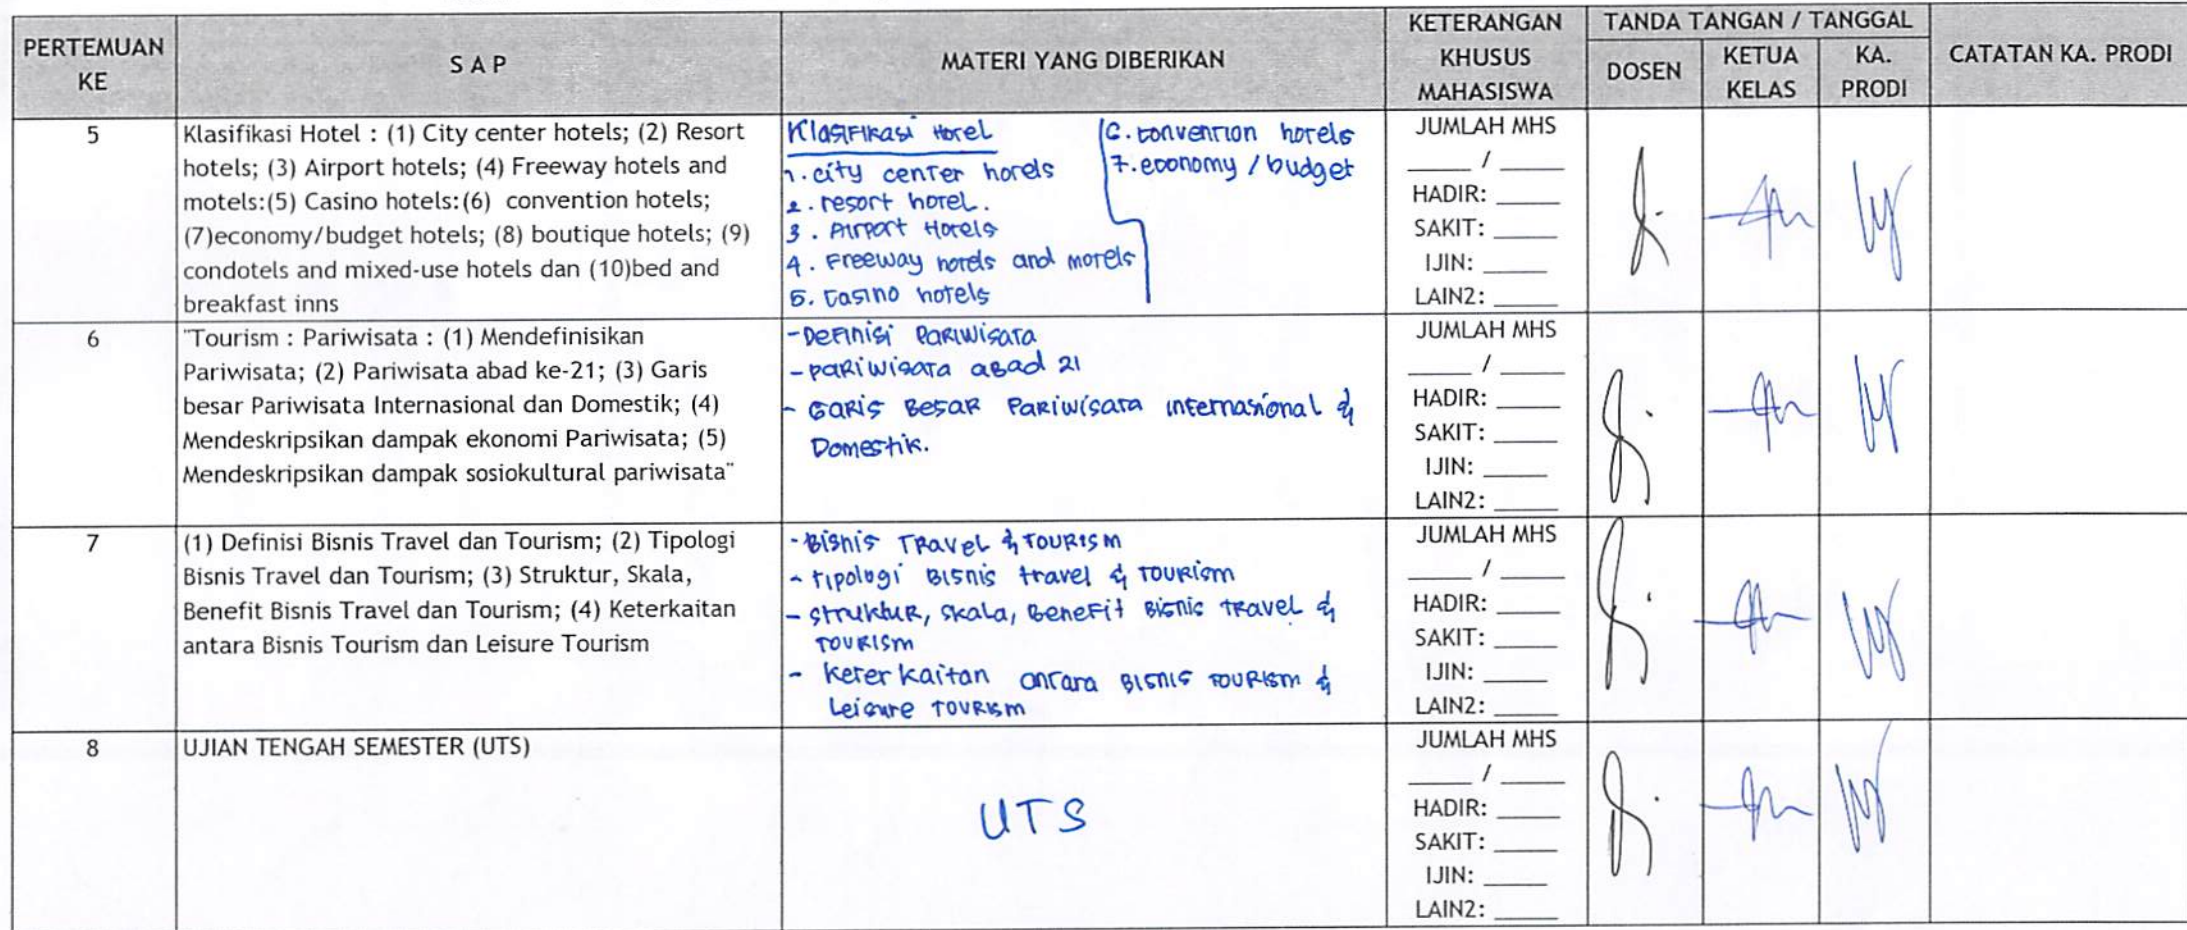 PERTEMUAN KE
S A P
MATERI YANG DIBERIKAN
KETERANGAN KHUSUS MAHASISWA
TANDA TANGAN / TANGGAL
DOSEN
KETUA KELAS
KA. PRODI
CATATAN KA. PRODI
5
Klasifikasi Hotel : (1) City center hotels; (2) Resort
hotels; (3) Airport hotels; (4) Freeway hotels and
motels:(5) Casino hotels:(6) convention hotels;
(7)economy/budget hotels; (8) boutique hotels; (9)
condotels and mixed-use hotels dan (10)bed and
breakfast inns
Klasifikasi Hotel
1. city center hotels
2. resort hotel.
3. Airport Hotels
4. Freeway hotels and motels
5. Casino hotels
6. convention hotels
7. economy / budget
JUMLAH MHS
____ / ____
HADIR: ____
SAKIT: ____
IJIN: ____
LAIN2: ____
6
"Tourism : Pariwisata : (1) Mendefinisikan
Pariwisata; (2) Pariwisata abad ke-21; (3) Garis
besar Pariwisata Internasional dan Domestik; (4)
Mendeskripsikan dampak ekonomi Pariwisata; (5)
Mendeskripsikan dampak sosiokultural pariwisata"
- Definisi Pariwisata
- pariwisata abad 21
- Garis Besar Pariwisata internasional &
Domestik.
JUMLAH MHS
____ / ____
HADIR: ____
SAKIT: ____
IJIN: ____
LAIN2: ____
7
(1) Definisi Bisnis Travel dan Tourism; (2) Tipologi
Bisnis Travel dan Tourism; (3) Struktur, Skala,
Benefit Bisnis Travel dan Tourism; (4) Keterkaitan
antara Bisnis Tourism dan Leisure Tourism
- Bisnis Travel & Tourism
- tipologi Bisnis travel & Tourism
- struktur, skala, Benefit Bisnis travel &
Tourism
- keterkaitan antara Bisnis Tourism &
Leisure Tourism
JUMLAH MHS
____ / ____
HADIR: ____
SAKIT: ____
IJIN: ____
LAIN2: ____
8
UJIAN TENGAH SEMESTER (UTS)
UTS
JUMLAH MHS
____ / ____
HADIR: ____
SAKIT: ____
IJIN: ____
LAIN2: ____